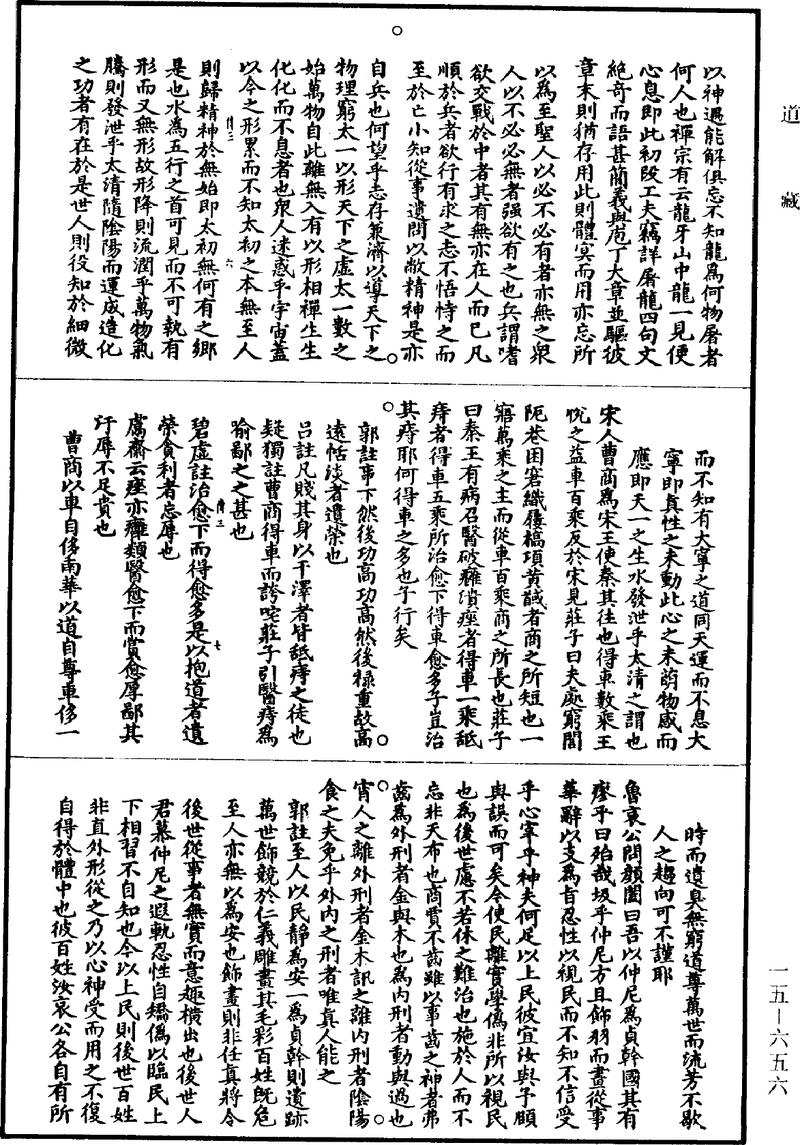 道藏
以神遇能解俱忘不知龍為何物屠者
何人也禪宗有云龍牙山中龍一見便
心息即此初段工夫竊詳屠龍四句文
絕奇而語甚簡義與庖丁大章並驅彼
章末則猶存用此則體冥而用亦忘所
以為至聖人以必不必有者亦無之衆
人以不必必無者强欲有之也兵謂嗜
欲交戰於中者其有無亦在人而已凡
順於兵者欲行有求之志不悟恃之而
至於亡小知從事遺問以敝精神是亦
自兵也何望乎志存兼濟以導天下之
物理窮太一以形天下之虛太一數之
始萬物自此離無入有以形相禪生生
化化而不息者也衆人迷惑乎宇宙蓋
以今之形累而不知太初之本無至人
則歸精神於無始即太初無何有之鄉
是也水為五行之首可見而不可執有
形而又無形故形降則流潤乎萬物氣
騰則發泄乎太清隨陰陽而運成造化
之功者有在於是世人則役知於細微
而不知有大寧之道同天運而不息大
寧即真性之未動此心之未萌物感而
應即天一之生水發泄乎太清之謂也
宋人曹商為宋王使秦其往也得車數乘王
悅之益車百乘反於宋見莊子曰夫處窮閭
阨巷困窘織屨槁項黃馘者商之所短也一
寤萬乘之主而從車百乘商之所長也莊子
曰秦王有病召醫破癰潰痤者得車一乘舐
痔者得車五乘所治愈下得車愈多子豈治
其痔耶何得車之多也子行矣
郭註事下然後功高功高然後祿重故高
遠恬淡者遺榮也
呂註凡賤其身以干澤者皆舐痔之徒也
疑獨註曹商得車而誇咤莊子引醫痔為
喻鄙之之甚也
碧虛註治愈下而得愈多是以抱道者遺
榮貪利者忘辱也
鬳齋云痤亦癰類醫愈下而賞愈厚鄙其
汙辱不足貴也
曹商以車自侈南華以道自尊車侈一
時而遺臭無窮道尊萬世而流芳不歇
人之趨向可不謹耶
魯哀公問顏闔曰吾以仲尼為貞幹國其有
瘳乎曰殆哉圾乎仲尼方且飾羽而畫從事
華辭以支為旨忍性以視民而不知不信受
乎心宰乎神夫何足以上民彼宜汝與予頤
與誤而可矣今使民離實學偽非所以視民
也為後世慮不若休之難治也施於人而不
忘非天布也商賈不齒雖以事齒之神者弗
齒為外刑者金與木也為內刑者動與過也
宵人之離外刑者金木訊之離內刑者陰陽
食之夫免乎外內之刑者唯真人能之
郭註至人以民靜為安一為貞幹則遺跡
萬世飾競於仁義雕畫其毛彩百姓既危
至人亦無以為安也飾畫則非任真將令
後世從事者無實而意趣橫出也後世人
君慕仲尼之遐軌忍性自矯偽以臨民上
下相習不自知也今以上民則後世百姓
非直外形從之乃以心神受而用之不復
自得於體中也彼百姓汝哀公各自有所
一五—六五六